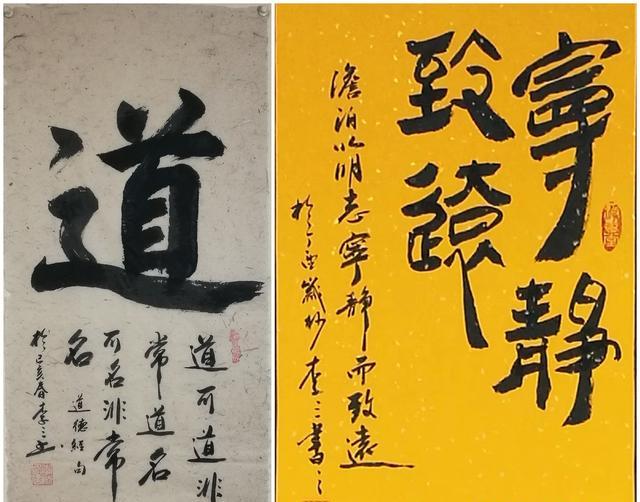 道
道可道非
常道名
可名非常
名
道德經句
於己亥春李三书
寧靜
致遠
澹泊以明志寧靜而致遠
於丁酉歲杪李三書之